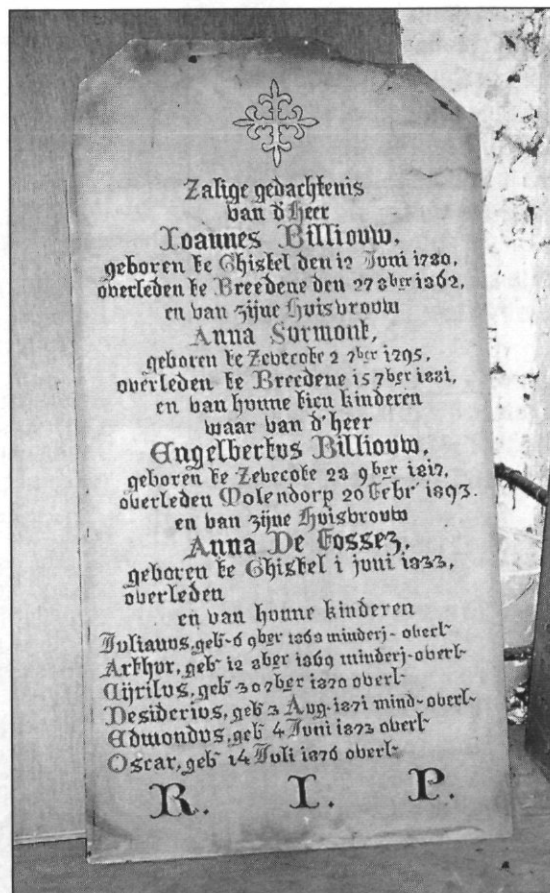 Zalige gedachtenis
van d'heer
Ioannes Billiouw,
geboren te Ghistel den 12 Juni 1780,
overleden te Breedene den 27 8ber 1862,
en van zijne huisvrouw
Anna Sormont,
geboren te Zevecote 2 7ber 1795,
overleden te Breedene 15 7ber 1881,
en van hunne tien kinderen
waar van d'heer
Engelbertus Billiouw,
geboren te Zevecote 28 9ber 1817,
overleden Molendorp 20 Febr' 1893.
en van zijne huisvrouw
Anna De Fossez,
geboren te Ghistel 1 juni 1833,
overleden
en van hunne kinderen
Julianus, geb- 6 9ber 1868 minderj- overl-
Arthur, geb- 12 8ber 1869 minderj- overl-
Cijrilus, geb- 30 7ber 1870 overl-
Desiderius, geb- 3 Aug- 1871 mind- overl-
Edmondus, geb- 4 Juni 1873 overl-
Oscar, geb- 14 Juli 1876 overl-
R. I. P.